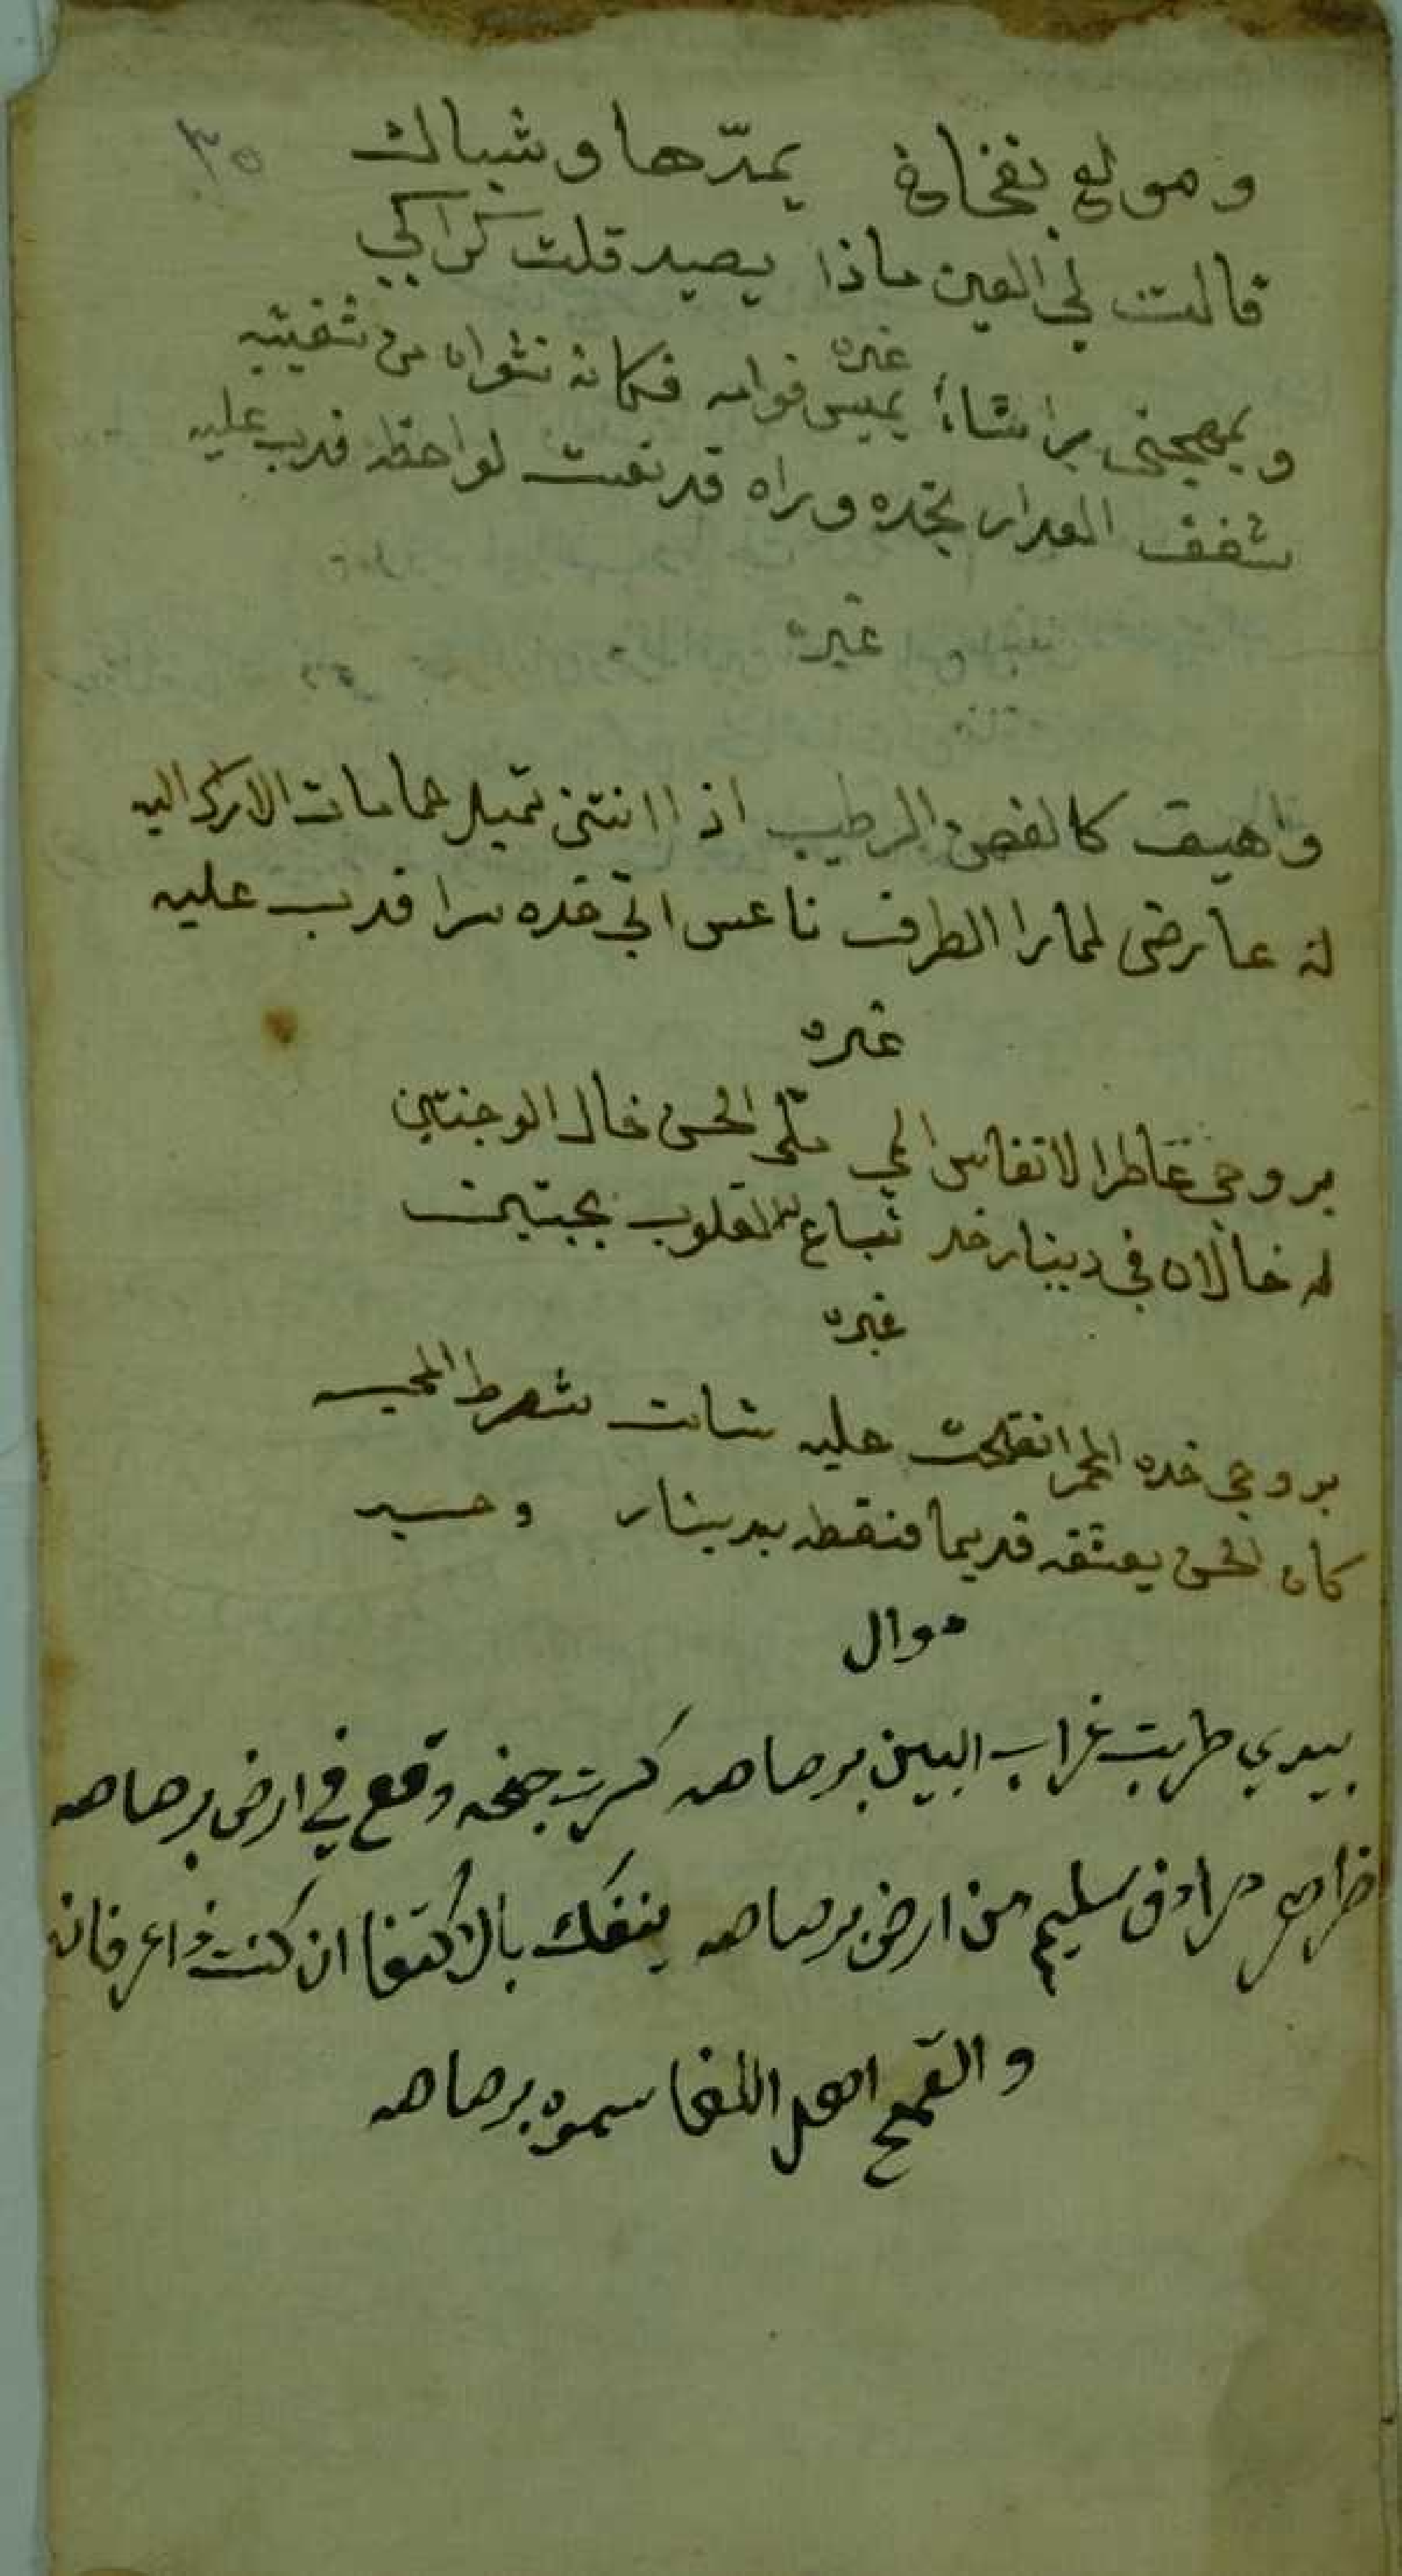 ٣٥
ومولع بفخاخ يمدّها وشباك
قالت لي العين ماذا يصيد قلت كراكي
غيره
وبمهجتي رشاء يميس قوامه فكانه نشوان من شفيتيه
شغف العدار بخده وراه قد نعست لواحظه فدب عليه
غيره
واهيف كالغصن الرطيب اذا انتنى تميل حمامات الاراك اليه
له عارض لما را الطرف ناعس اتى خده سرا فدب عليه
غيره
بروحي عاطر الانفاس المى ملى الحسن خال الوجنتين
له خالان في دينار خد تباع القلوب بحبتين
غيره
بروحي خده المحمر عليه شامت شرط المحبه
كان الحسن يعشقه قديما فنقطه بدينار وحبه
موال
بيدي طربت غراب البين برصاصه كسرت جنحه وقع في ارض برصاصه
سليم من ارض برصاصه ينفك بالاكتفا ان كنت اعرفانه
والقمح اهل اللغا سموه برصاصه